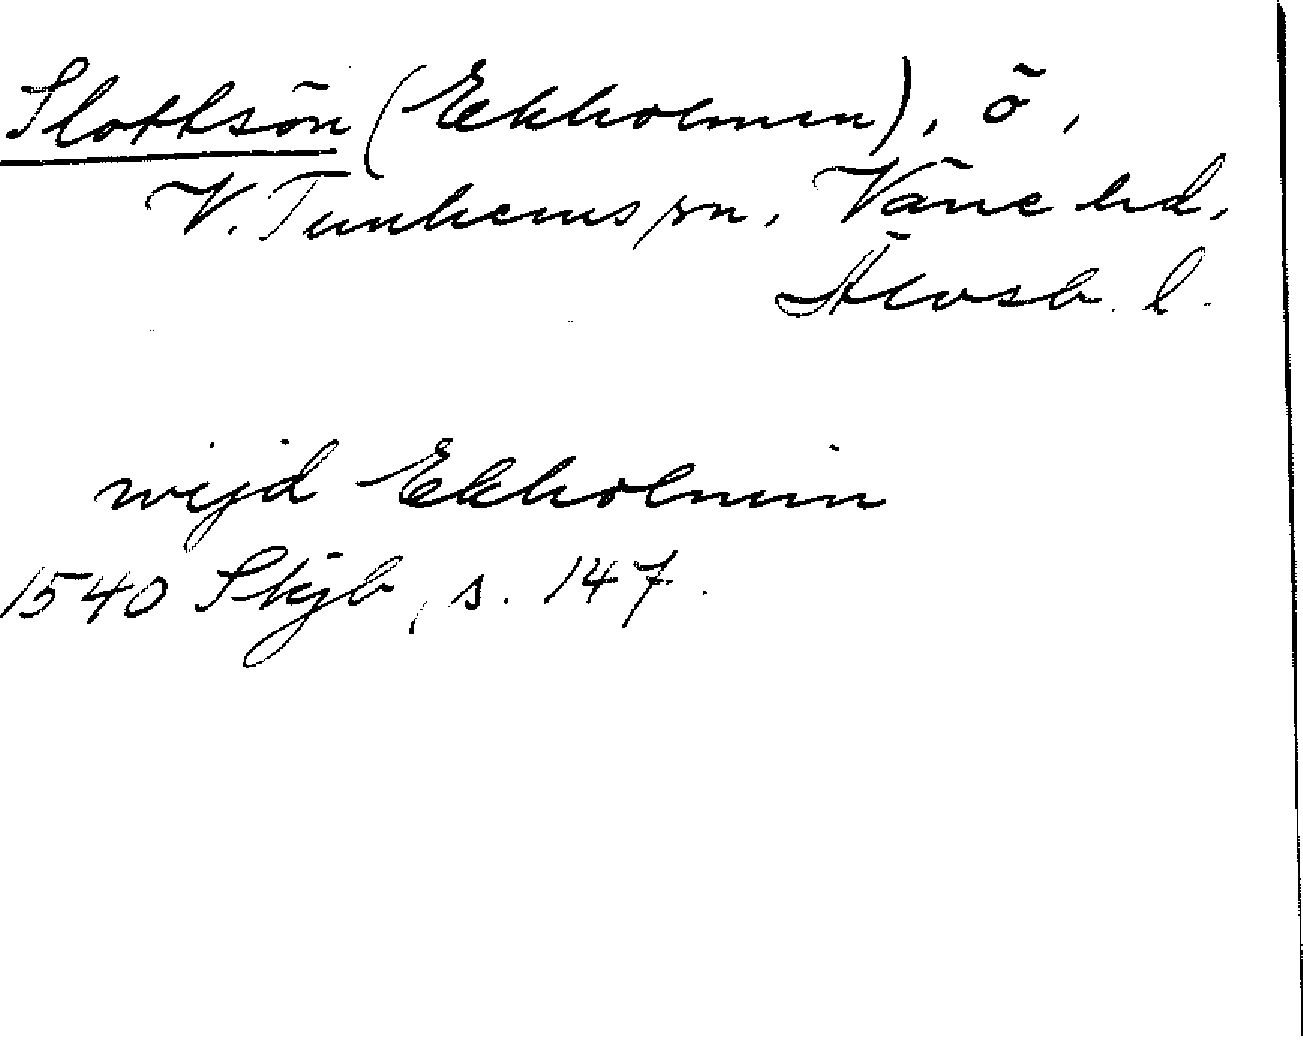 Slottsön (Ekholmen), ö,
V. Tunhems sn, Väne hd,
Älvsb. l.
wijd Ekholmin
1540 Skjb, s. 147.